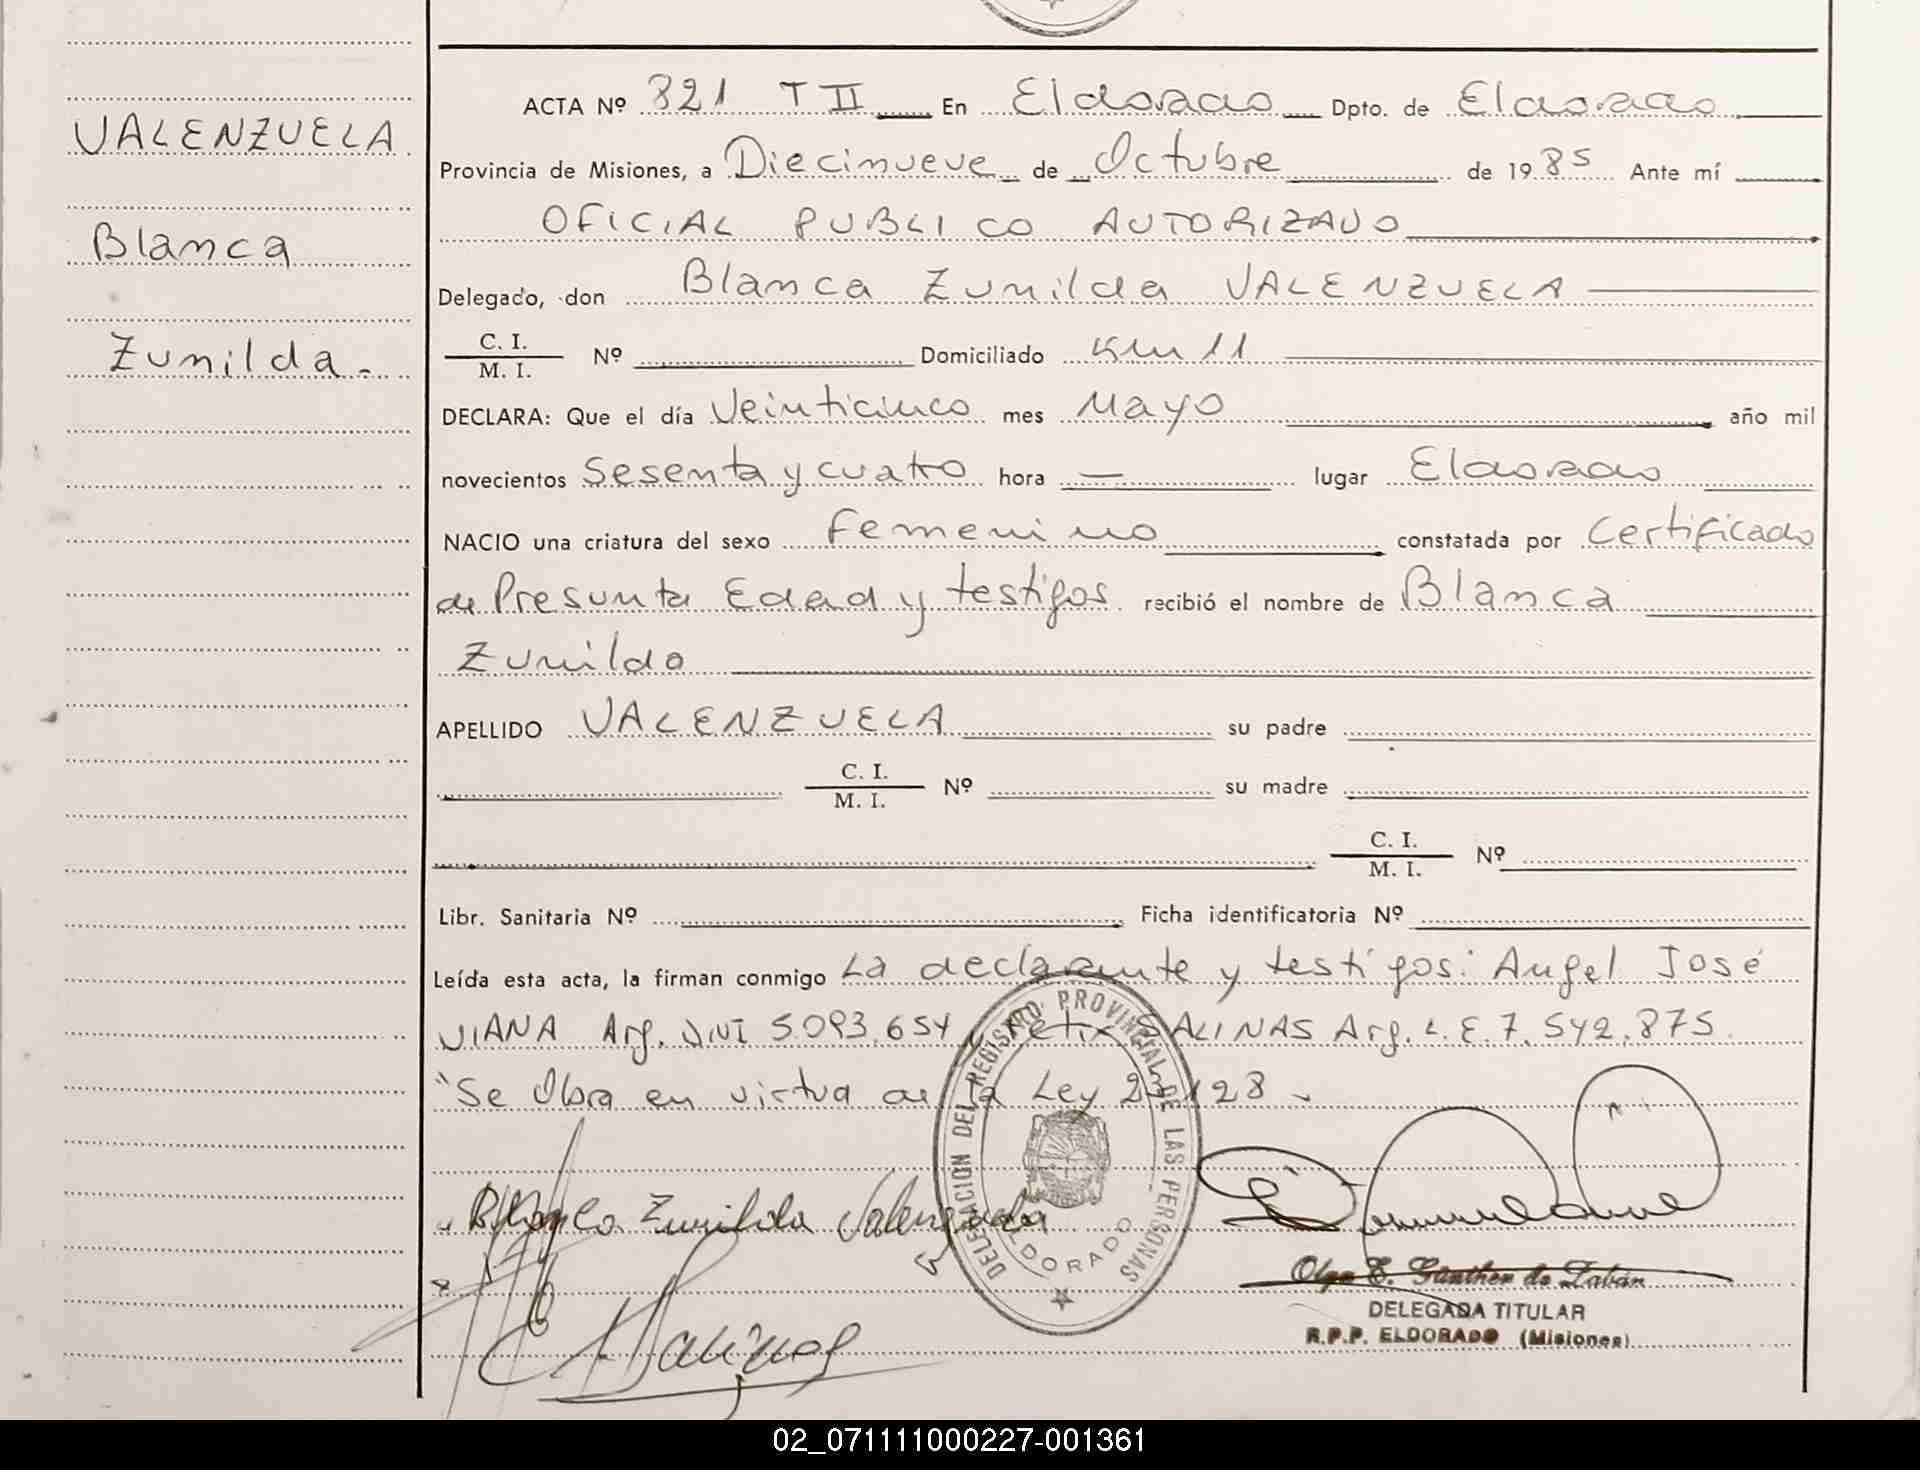 VALENZUELA
Blanca
Zunilda.-
ACTA Nº 821 T II En Eldorado Dpto. de Eldorado
Provincia de Misiones, a Diecinueve de Octubre de 1985 Ante mí
OFICIAL PUBLICO AUTORIZADO
Delegado, don Blanca Zunilda VALENZUELA
C. I.
M. I. Nº Domiciliado Km 11
DECLARA: Que el día Veinticinco mes Mayo año mil
novecientos Sesenta y cuatro hora — lugar Eldorado
NACIO una criatura del sexo femenino constatada por Certificado
de Presunta Edad y testigos recibió el nombre de Blanca
Zunilda
APELLIDO VALENZUELA su padre
C. I.
M. I. Nº su madre
C. I.
M. I. Nº
Libr. Sanitaria Nº Ficha identificatoria Nº
Leída esta acta, la firman conmigo La declarante y testigos: Angel José
VIANA Arg. DNI 5.093.654 y Felix SALINAS Arg. L.E. 7.542.875.
"Se Obra en virtud de la Ley 23.128 -
Blanca Zunilda Valenzuela
DELEGACION DEL REGISTRO PROVINCIAL DE LAS PERSONAS
ELDORADO
Salinas
Olga E. Günther de Zabán
DELEGADA TITULAR
R.P.P. ELDORADO (Misiones)
02_071111000227-001361